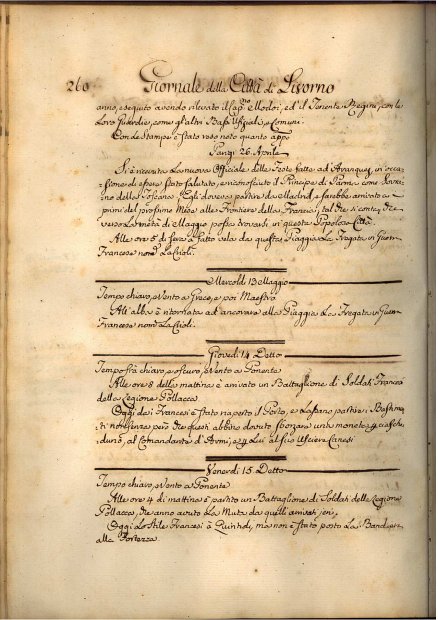 260 Giornale della Città di Livorno
anno, eseguito avendo rilevato il Cap.no Modoi, ed il Tenente Regini, con le
Loro Guardie, come gli altri Bassi Ufiziali e Comuni.
Con le Stampe è stato reso noto quanto app.o
Parigi 26. Aprile
Si è ricevuta La nuova Officiale delle Feste fatte ad Aranquez in occa-
-sione di essere stato salutato, e riconosciuto il Principe di Parma come Sovra-
no della Toscana: Egli doveva partire da Madrid e sarebbe arrivato a
primi del prossimo Mese alle Frontiere della Francia; tal che si conta, che
verso La metà di Maggio possa trovarsi in questa Popolosa Città.
Alle ore 5 di sera à fatto vela da questa Piaggia La Fregata in Guerra
Francese nom.a La
Mercoldì 13 Maggio
Tempo chiaro, e Vento a Greco, e poi Maestro
All'alba è ritornata ad ancorare alla Piaggia La Fregata in Guerra
Francese nom.a La
Giovedì 14 Detto
Tempo frà chiaro, e oscuro, e Vento a Ponente
Alle ore 8 della mattina è arrivato un Battaglione di Soldati Francesi
della Legione Pollacca
Oggi dai Francesi è stato riaperto il Porto, e Lasciano partire i Bastimen
ti non senza però che questi abbino dovuto sborzare un monete 24 ciasche-
duno, al Comandante d'Armi, e 24 Lui al suo Usciere Canesi
Venerdì 15 Detto
Tempo chiaro, e Vento a Ponente
Alle ore 4 di mattina è partito un Battaglione di Soldati della Legione
Pollacca, che anno avuto La Muta da quelli arrivati jeri
Oggi Lo Stile Francesi è Quintidi, ma non è stato posto La Bandiera
alla Fortezza